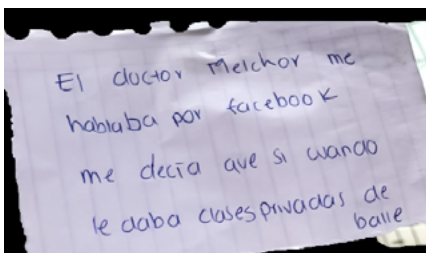 El doctor Melchor me
hablaba por facebook
me decía que si cuando
le daba clases privadas de
baile